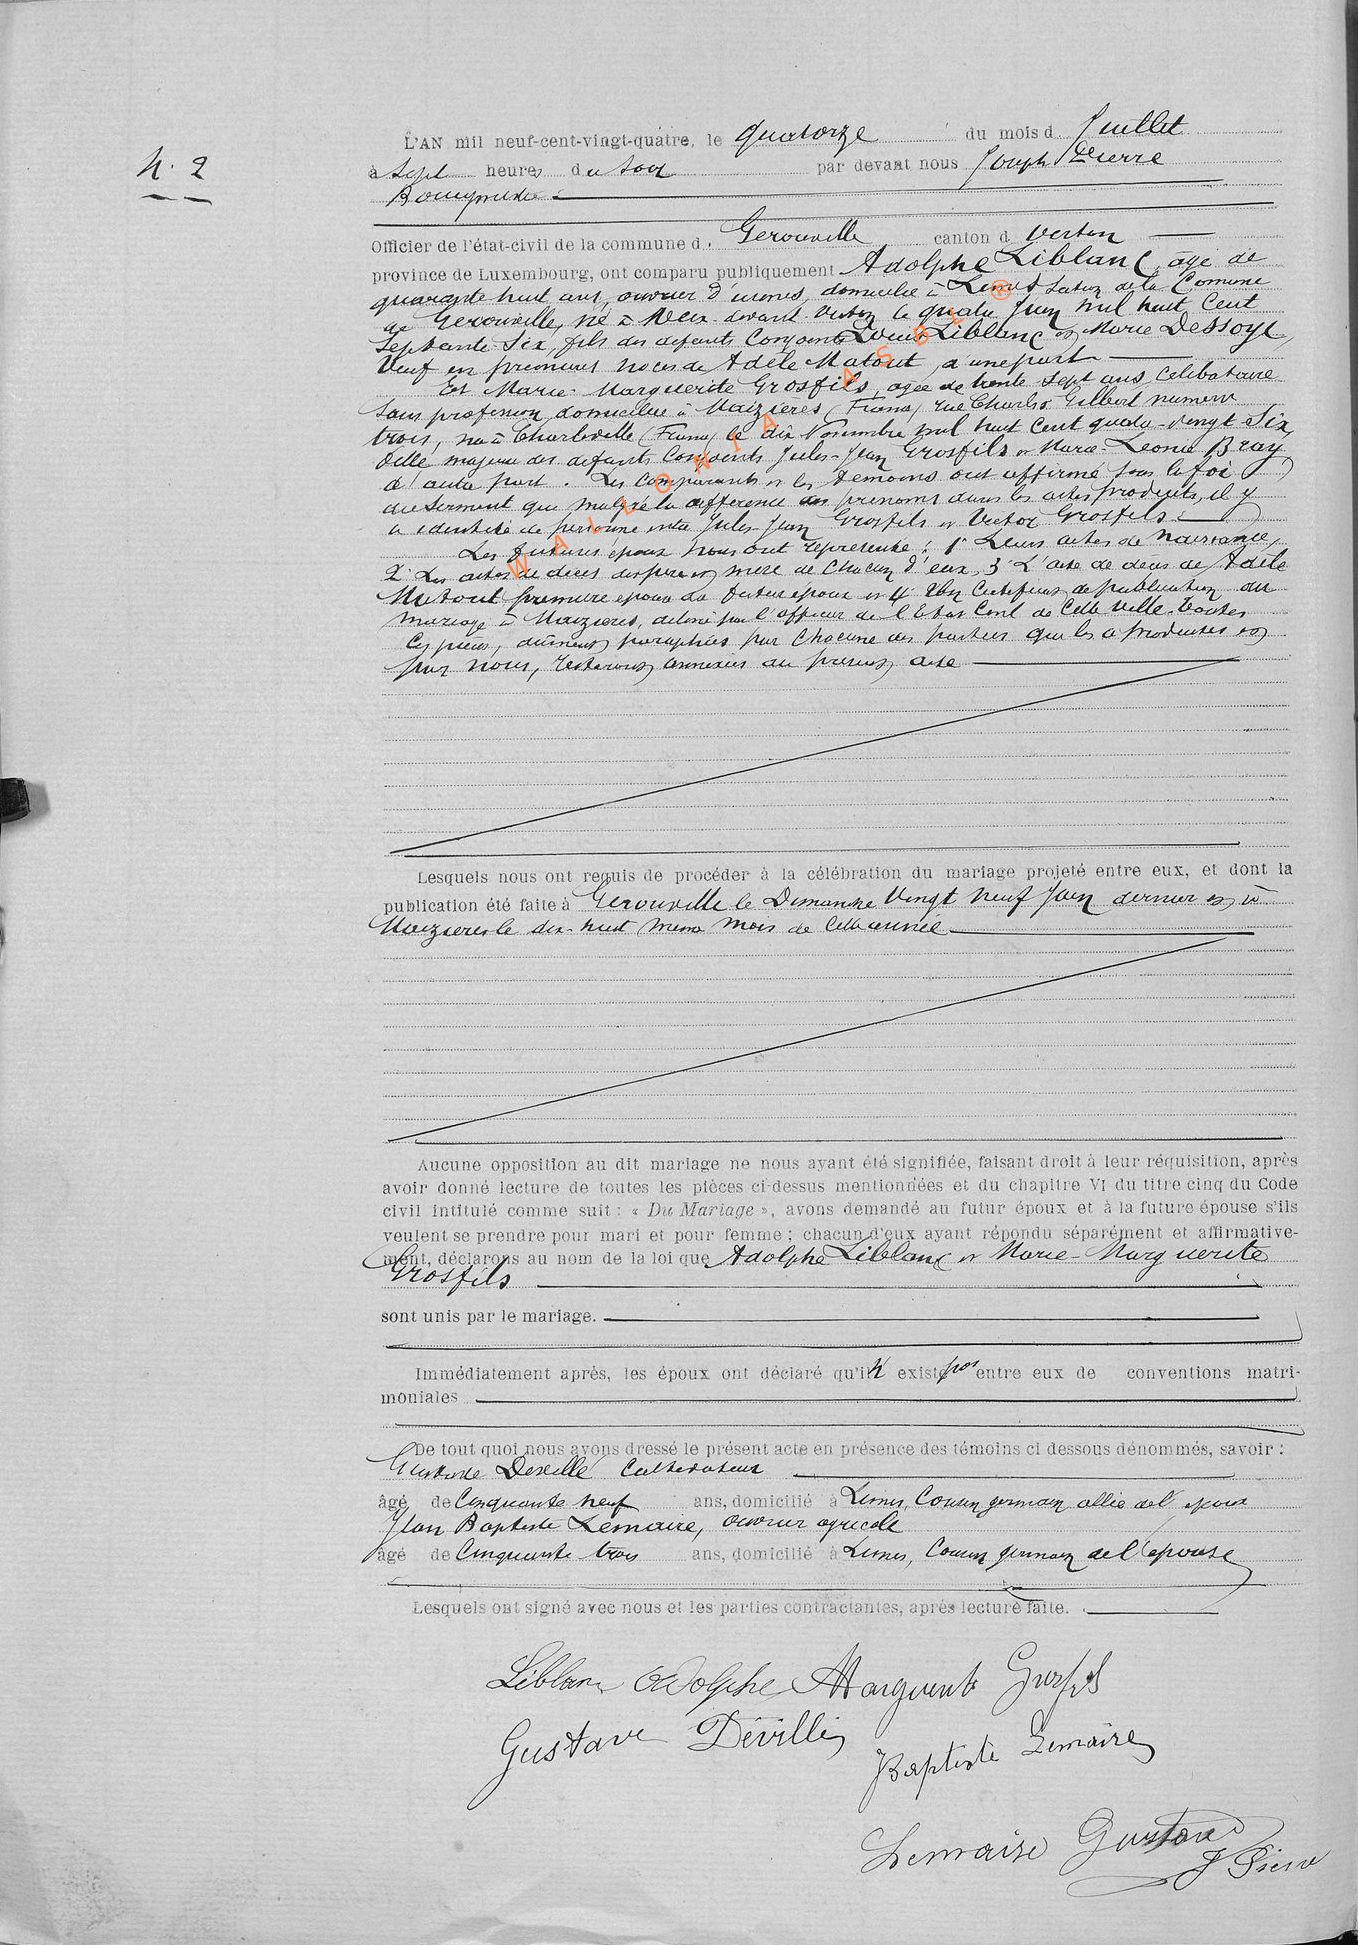 N. 2
L'AN mil neuf-cent-vingt-quatre, le quatorze du mois d Juillet
à sept heures du soir par devant nous Joseph Pierre
Bourgmestre
Officier de l'état-civil de la commune d. Gerouville canton d Virton
province de Luxembourg, ont comparu publiquement Adolphe Liblanc, âgé de
quarante huit ans, ouvrier d'usines, domicilié à Limes section de la Comune
de Gerouville, né à Meix devant Virton le quatre Juin mil huit Cent
Septante Six, fils des defunts Conjoints Louis Liblanc et Marie Dessoye,
Veuf en premieres noces de Adèle Matout, d'une part
Et Marie Marguerite Grosfils, agée de trente sept ans, Celibataire
Sans profession, domiciliée à Maizieres (France) rue Charles Gilbert numero
trois, née à Charleville (France) le dix Novembre mil huit Cent quatre-vingt Six,
fille majeure des defunts Conjoints Jules-Jean Grosfils et Marie-Leonie Bray,
d'autre part. Les Comparants et les temoins ont affirmé sous la foi
du serment que malgré la difference des prenoms dans les actes produits, il y
a identité de personne entre Jules Jean Grosfils et Victor Grosfils.
Les futurs époux nous ont representé : 1° Leurs actes de naissance,
2° Les actes de deces des pere et mere de Chacun d'eux, 3° L'acte de deces de Adèle
Matout premiere epouse du futur epoux et 4° Un Certificat de publication du
mariage à Maizieres, delivré par l'officier de l'Etat Civil de Cette Ville. Toutes
Ces pièces, dûment paraphées par Chacune des parties qui les a produites et
par nous, resteront annexées au present acte
Lesquels nous ont requis de procéder à la célébration du mariage projeté entre eux, et dont la
publication été faite à Gerouville le Dimanche Vingt neuf Juin dernier et à
Maizieres le dix-huit même mois de Cette année
Aucune opposition au dit mariage ne nous ayant été signifiée, faisant droit à leur réquisition, après
avoir donné lecture de toutes les pièces ci-dessus mentionnées et du chapitre VI du titre cinq du Code
civil intitulé comme suit : « Du Mariage », avons demandé au futur époux et à la future épouse s'ils
veulent se prendre pour mari et pour femme ; chacun d'eux ayant répondu séparément et affirmative-
ment, déclarons au nom de la loi que Adolphe Liblanc et Marie-Marguerite
Grosfils
sont unis par le mariage.
Immédiatement après, les époux ont déclaré qu'il n existe pas entre eux de conventions matri-
moniales
De tout quoi nous avons dressé le présent acte en présence des témoins ci dessous dénommés, savoir :
Gustave Deville Cultivateur
âgé de Cinquante neuf ans, domicilié à Limes, Cousin germain allié de l'epoux
Jean Baptiste Lemaire, ouvrier agricole
âgé de Cinquante trois ans, domicilié à Limes, Cousin germain de l'epouse
Lesquels ont signé avec nous et les parties contractantes, après lecture faite.
Liblanc Adolphe Marguerite Grosfils
Gustave Déville
Baptiste Lemaire
Lemaire Gustave
J Pierre
WALLONIA ASBL ®